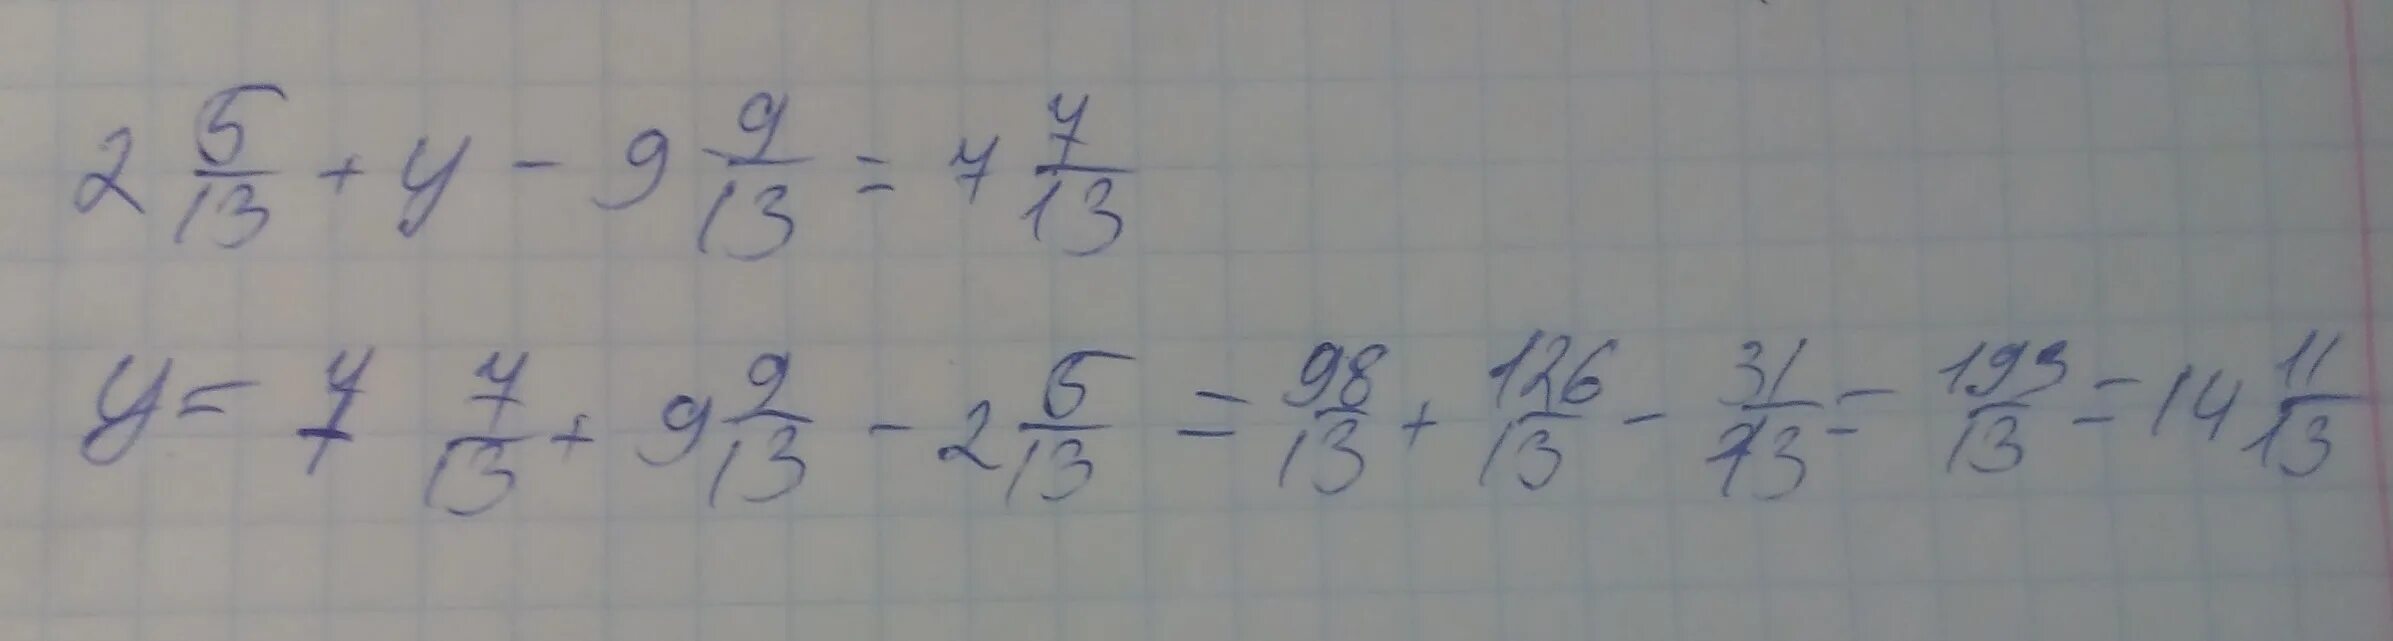 2 5/13 + y - 9 9/13 = 7 7/13
y = 7 7/13 + 9 9/13 - 2 5/13 = 98/13 + 126/13 - 31/13 = 193/13 = 14 11/13